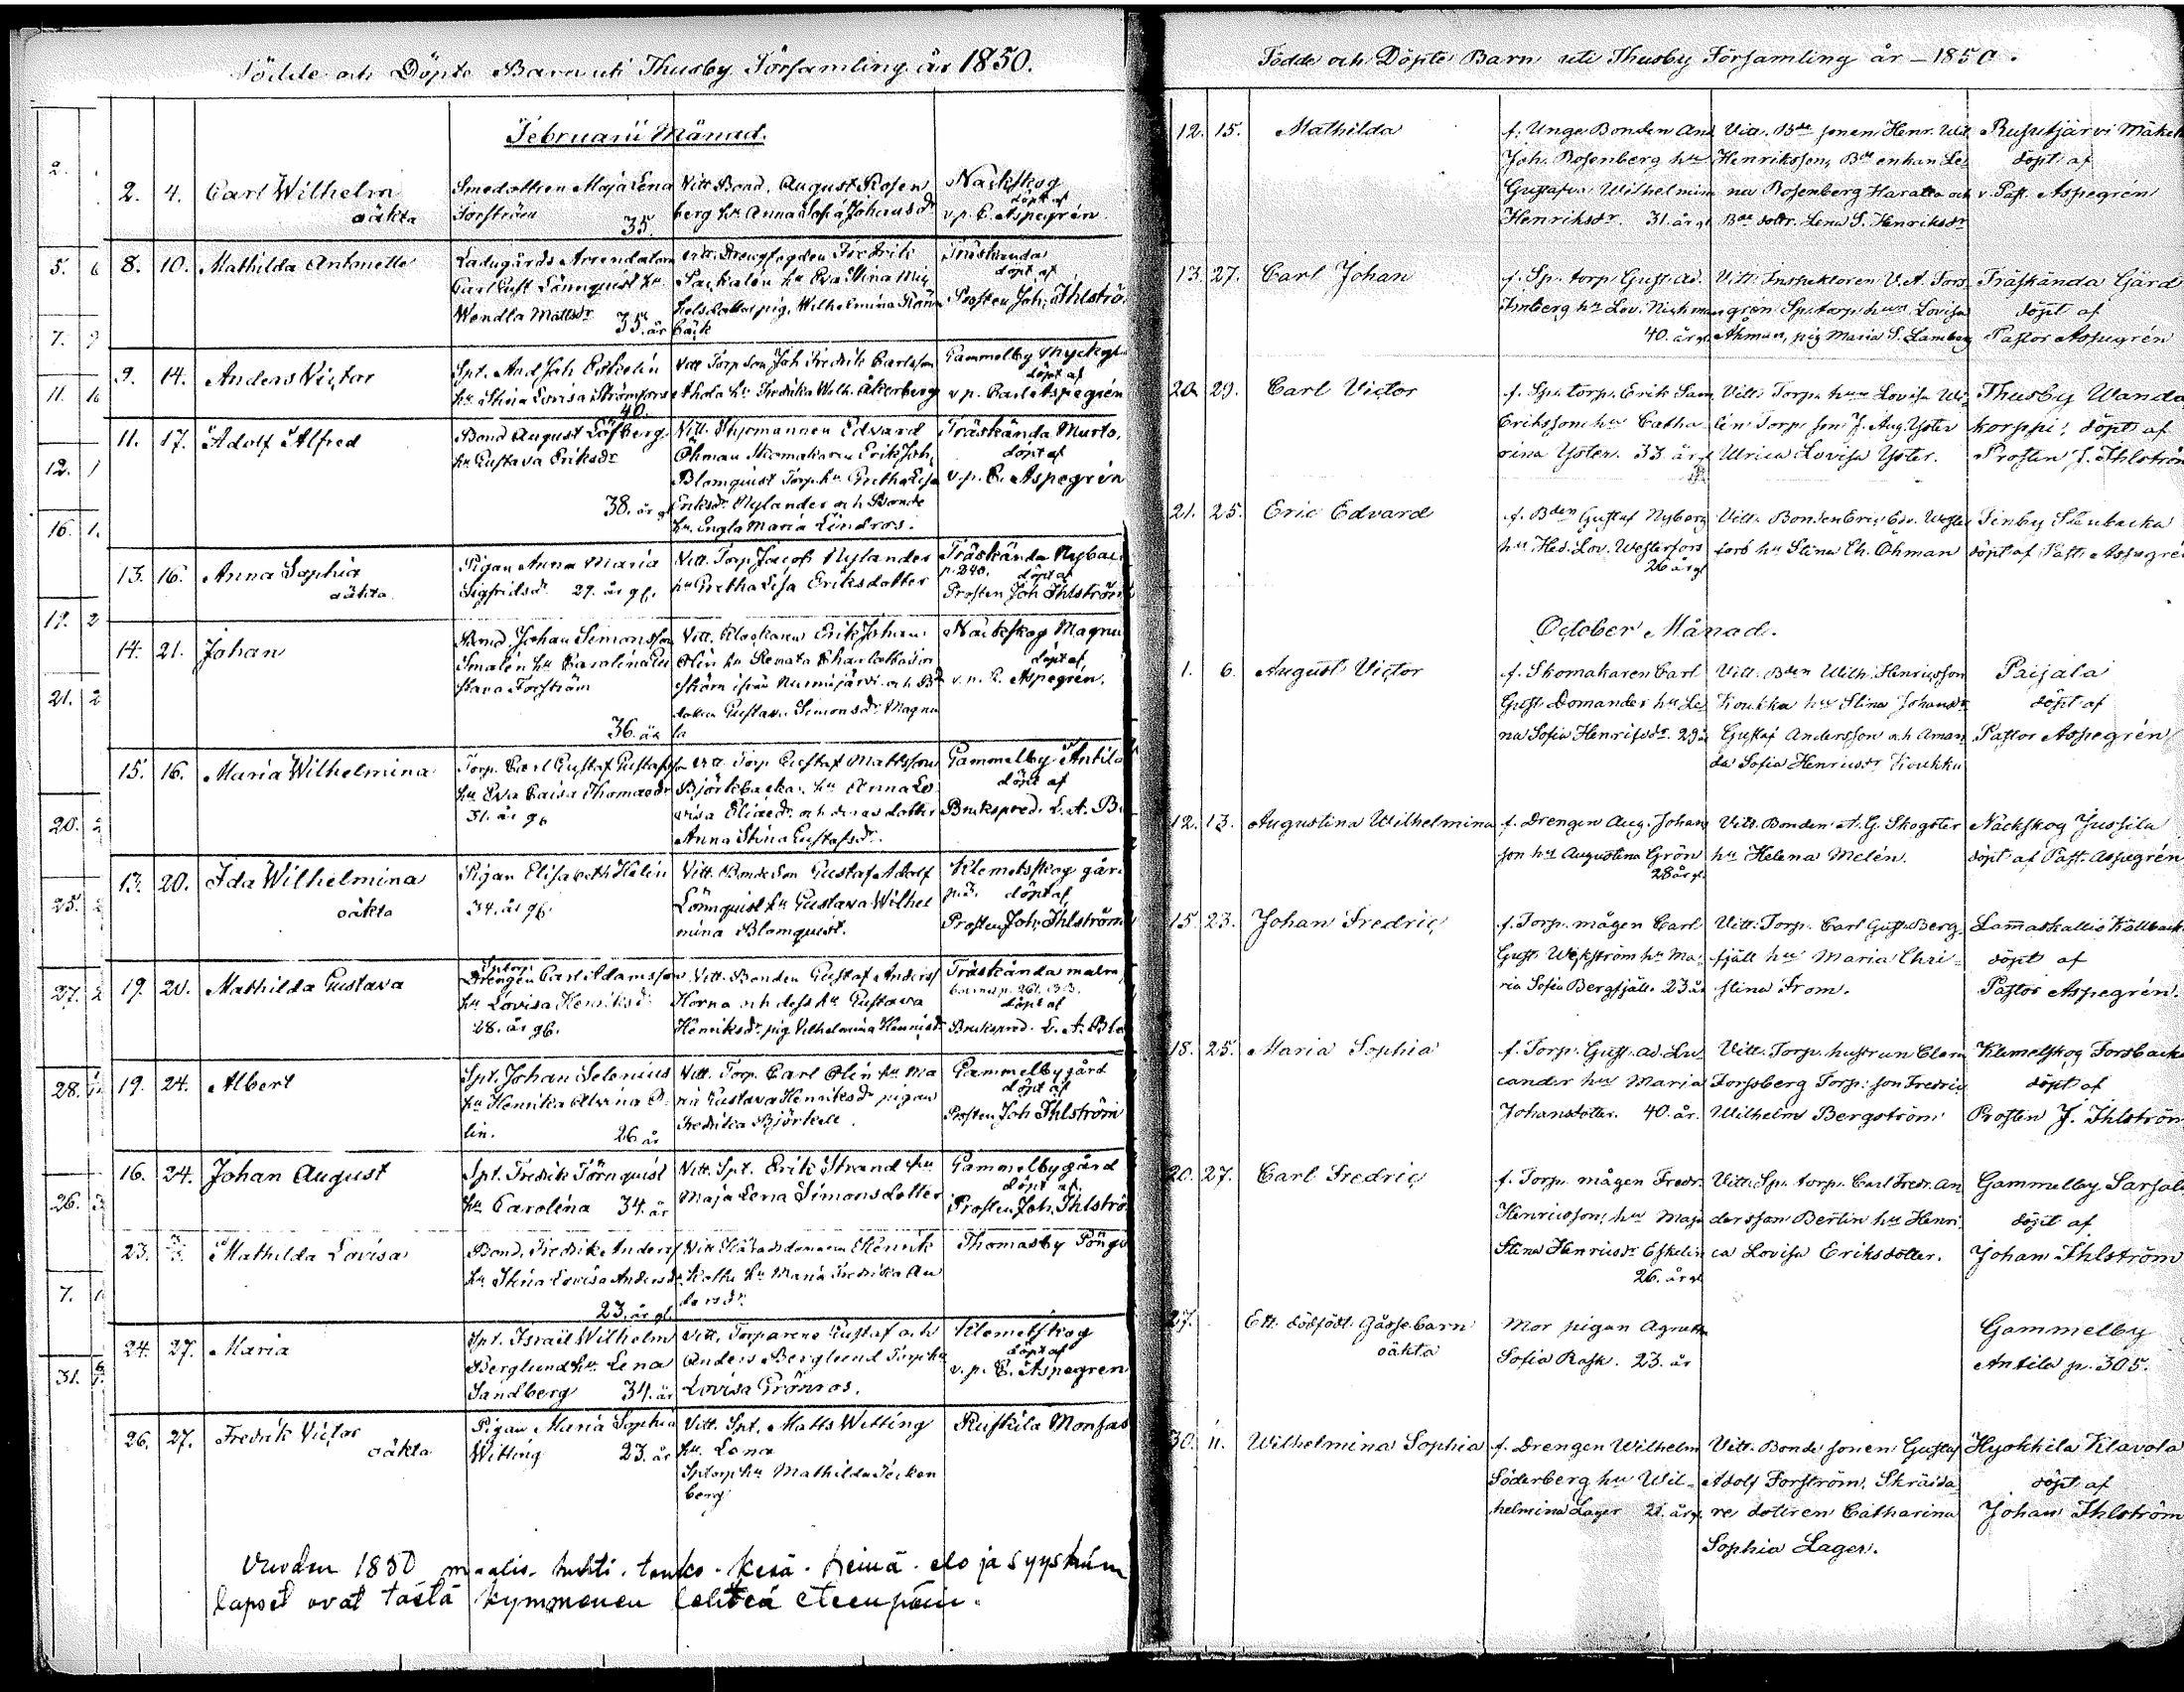 Födde och Döpte Barn uti Thusby Församling år 1850.
Februarii Månad.
2. 4. Carl Wilhelm
oäkta
Smedottren Maja Lena
Forström
35.
Vitt Bond. August Rosen
berg hu Anna Sofia Johansdr
Nackskog
döpt af
v.p. C. Aspegrén
8. 10. Mathilda Antonette
Ladugårds Arrendatorn
Carl Gust Lönnquist hu
Wendla Mattsdr 35. år
Vitt. Drengfogden Fredrik
Träskända
döpt af
Prosten Joh. Ihlströ
9. 14. Anders Victor
Spt. And Joh Eskolin
hu Stina Lovisa Strömfors
40.
Vitt Torp Son Joh Fredrik Carlsson
Ahola hu Fredrika Wilh. Åkerberg
Gammelby
döpt af
v p. Carl Aspegrén
11. 17. Adolf Alfred
Bond August Löfberg
hu Gustava Eriksdr
38. år gl
Vitt. Styrmannen Edvard
Öhman Skomakaren Erik Joh.
Blomquist Torp. hu Gretha Lisa
Eriksdr Nylander och Bonde
hu. Engla Maria Lindros.
Träskända Murto.
döpt af
v.p. C. Aspegrén
13. 16. Anna Sophia
oäkta
Pigan Anna Maria
Sigfridsdr 29. år gl.
Vitt. Torp Jacob Nylander
hu Gretha Lisa Eriksdotter
Träskända Nybac
p. 240. döpt af
Prosten Joh Ihlström
14. 21. Johan
Bond Johan Simonsson
Smalén hu Carolina Gu
stava Forström
36. år
Vitt. Klockaren Erik Johan
Olin hu Renata Charlotta
från Nurmijärvi och Bd
Gustava Simonsdr Magnu
la
Nackskog Magnu
döpt af
Aspegrén.
15. 16. Maria Wilhelmina
Torp. Carl Gustaf Gustafsson
hu Eva Caisa Thomasdr
31. år gl
Vitt Torp Gustaf Mattsson
Björkbacka. hu Anna Lo
visa Eliaedr och deras dotter
Anna Stina Gustafsdr.
Gammelby Antila
döpt af
Brukspred. L. A. B
13. 20. Ida Wilhelmina
oäkta
Pigan Elisabeth Helin
34. år gl.
Vitt. Bonde Son Gustaf Adolf
Lönnquist hu Gustava Wilhel
mina Blomquist.
Klemetskog går
p. 3. döpt af
Prosten Joh. Ihlström
19. 20. Mathilda Gustava
Sptorp
Drengen Carl Adamsson
hu Lovisa Henriksdr
28. år gl.
Vitt. Bonden Gustaf Anders
Horna och dess hu Gustava
Henriksdr pig Vilhelmina Henriksdr
Träskända malm
döpt af
Brukspred. L. A. Bl
19. 24. Albert
Spt. Johan Selenius
hu Henrika Alvina O
lin. 26 år
Vitt. Torp. Carl Olin hu Ma
ria Gustava Henriksdr pigan
Fredrika Björkell
Gammelby gård
döpt af
Prosten Joh Ihlström
16. 24. Johan August
Spt. Fredrik Törnquist
hu Carolina 34. år
Vitt. Spt. Erik Strand hu
Maja Lena Simonsdotter
Gammelby gård
döpt af
Prosten Joh. Ihlströ
23. Mathilda Lovisa
Bond. Fredrik Anders
hu Stina Lovisa Andersdr
23. år gl
Vitt Häradsdomaren Henrik
hu Maria Fredrika An
dersdr.
Thomasby Pöng
24. 27. Maria
Spt. Israel Wilhelm
Berglund hu. Lena
Sandberg 34. år
Vitt. Torparene Gustaf och
Anders Berglund Torp hu
Lovisa Grönros.
Klemetskog
döpt af
v. p. C. Aspegren
26. 27. Fredrik Victor
oäkta
Pigan Maria Sophia
Witting 23. år
Vitt. Spt. Matts Witting
hu. Lena
Sptorp hu Mathilda Tecken
berg
Ruskila Monsas
Vuoden 1850 maalis- huhti- touko- kesä- heinä- elo ja syyskuun
lapset ovat tästä kymmenen lehteä eteenpäin.
Födde och Döpte Barn uti Thusby Församling år 1850.
12. 15. Mathilda
f. Unge Bonden And
Joh. Rosenberg hu
Gustafva Wilhelmin
Henriksdr. 31. år gl
Vitt. Bde sonen Henr. Wil.
Henriksson, Bde enkan Le
na Rosenberg Haralla och
Bde dottr. Lena S. Henriksdr
Rusutjärvi Mäkel
döpt af
v. Past. Aspegrén
13. 27. Carl Johan
f. Sp. torp. Gust. Ad.
Amberg hu Lov. Nickman
40. år gl
Vitt. Inspektoren V. A. Fors
gren Sp. torp. hun Lovisa
Åhman, pig Maria S. Lamberg
Träskända Gård
döpt af
Pastor Aspegrén
20. 29. Carl Victor
f. Sp. torp. Erik Sam
Eriksson hu Catha
rina Yster. 33. år gl
Vitt. Torp. hun Lovisa We
lin Torp. son J. Aug. Yster
Ulrica Lovisa Yster.
Thusby Wanda
korppi, döpt af
Prosten J. Ihlström
21. 25. Eric Edvard
f. Bden Gustaf Nyberg
hu Hed. Lov. Westerfors
26 år gl
Vitt. Bonden Eric Edv. Wester
fors hu Stina Ch. Öhman
Finby Stubacka
döpt af Past. Aspegré
October Månad.
1. 6. August Victor
f. Skomakaren Carl
Gust. Domander hu Le
na Sofia Henriksdr. 29 år
Vitt. Bden Wilh. Henricsson
Koukka hu Stina Johansdr
Gustaf Andersson och Aman
da Sofia Henricsdr Koukku
Paijala
döpt af
Pastor Aspegrén
12. 13. Augustina Wilhelmina
f. Drengen Aug. Johans
son hu Augustina Grön
28 år gl.
Vitt. Bonden A. G. Skogster
hu Helena Melén.
Nackskog Jussila
döpt af Past. Aspegrén
15. 23. Johan Fredric
f. Torp. mågen Carl
Gust. Wekström hu Ma
ria Sofia Bergfjäll. 23 år
Vitt. Torp. Carl Gust. Berg
fjäll hu Maria Chri
stina From.
Lamaskallio Källback
döpt af
Pastor Aspegrén.
18. 25. Maria Sophia
f. Torp. Gust. Ad. Lu
cander hu Maria
Johansdotter. 40. år.
Vitt. Torp. hustrun Clara
Forssberg Torp. son Fredric
Wilhelm Bergström
Klemetskog Forsbacka
döpt af
Prosten J. Ihlström
20. 27. Carl Fredric
f. Torp. mågen Fredr.
Henricsson, hu Maja
Stina Henricsdr Eskelin
26. år gl
Vitt. Sp. torp. Carl Fredr. An
dersson Berlin hu Henri
ca Lovisa Eriksdotter.
Gammelby Sarsala
döpt af
Johan Ihlström
27. Ett dödfödt Gåssebarn
oäkta
Mor pigan Agnetta
Sofia Rask. 23. år
Gammelby
Antila p. 305.
30. 11. Wilhelmina Sophia
f. Drengen Wilhelm
Söderberg hu Wil-
helmina Lager 21. år gl
Vitt. Bonde sonen Gustaf
Adolf Forström, Skräda
re dottren Catharina
Sophia Lager.
Hyökkilä Klavola
döpt af
Johan Ihlström